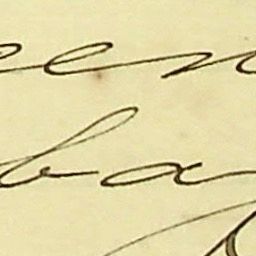 een
ba